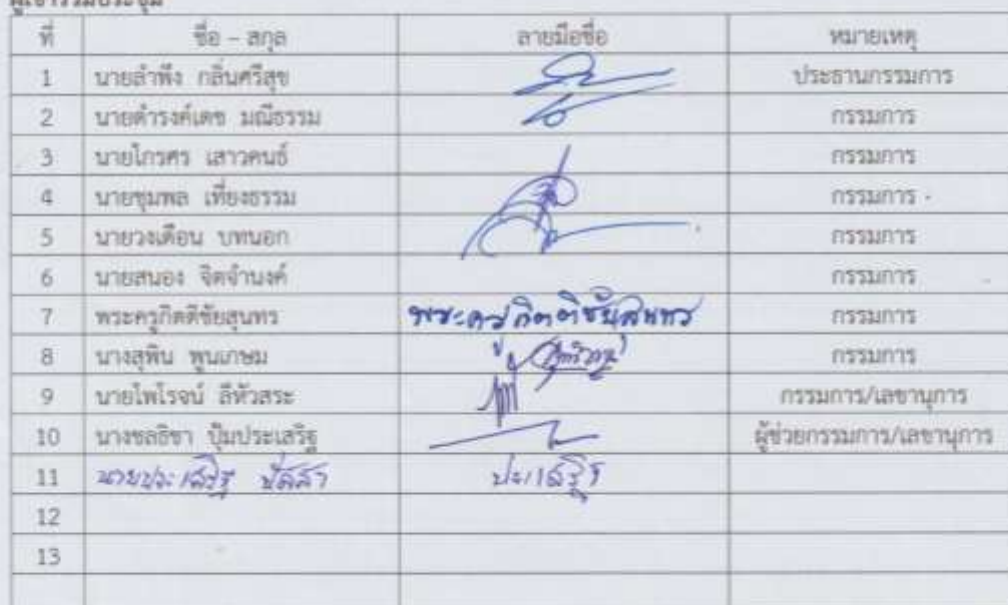 ผู้เข้าร่วมประชุม
ที่ ชื่อ – สกุล ลายมือชื่อ หมายเหตุ
1 นายลำพึง กลิ่นศรีสุข ประธานกรรมการ
2 นายดำรงค์เดช มณีธรรม กรรมการ
3 นายไกรศร เสาวคนธ์ กรรมการ
4 นายชุมพล เที่ยงธรรม กรรมการ
5 นายวงเดือน บทนอก กรรมการ
6 นายสนอง จิตจำนงค์ กรรมการ
7 พระครูกิตติชัยสุนทร พระครูกิตติชัยสุนทร กรรมการ
8 นางสุพิน พูนเกษม กรรมการ
9 นายไพโรจน์ ลีหัวสระ กรรมการ/เลขานุการ
10 นางชลธิชา ปุ้มประเสริฐ ผู้ช่วยกรรมการ/เลขานุการ
11 นายประเสริฐ ประเสริฐ
12
13